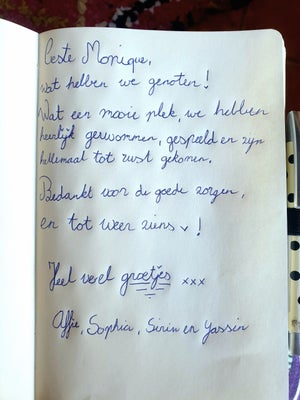 Beste Monique,
wat hebben we genoten!
Wat een mooie plek, we hebben
heerlijk gezwommen, gespeeld en zijn
hellemaal tot rust gekomen.
Bedankt voor de goede zorgen,
en tot weer ziens !
Heel veel groetjes xxx
Effie, Sophia, Sirin en Yassin